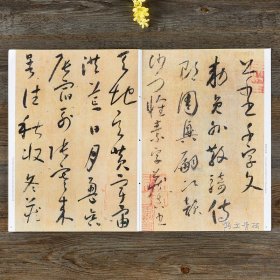 千字文
勅員外散騎侍
郎周興嗣次韻
沙門懷素字藏真
天地玄黃宇宙
洪荒日月盈昃
辰宿列張寒來
暑往秋收冬藏